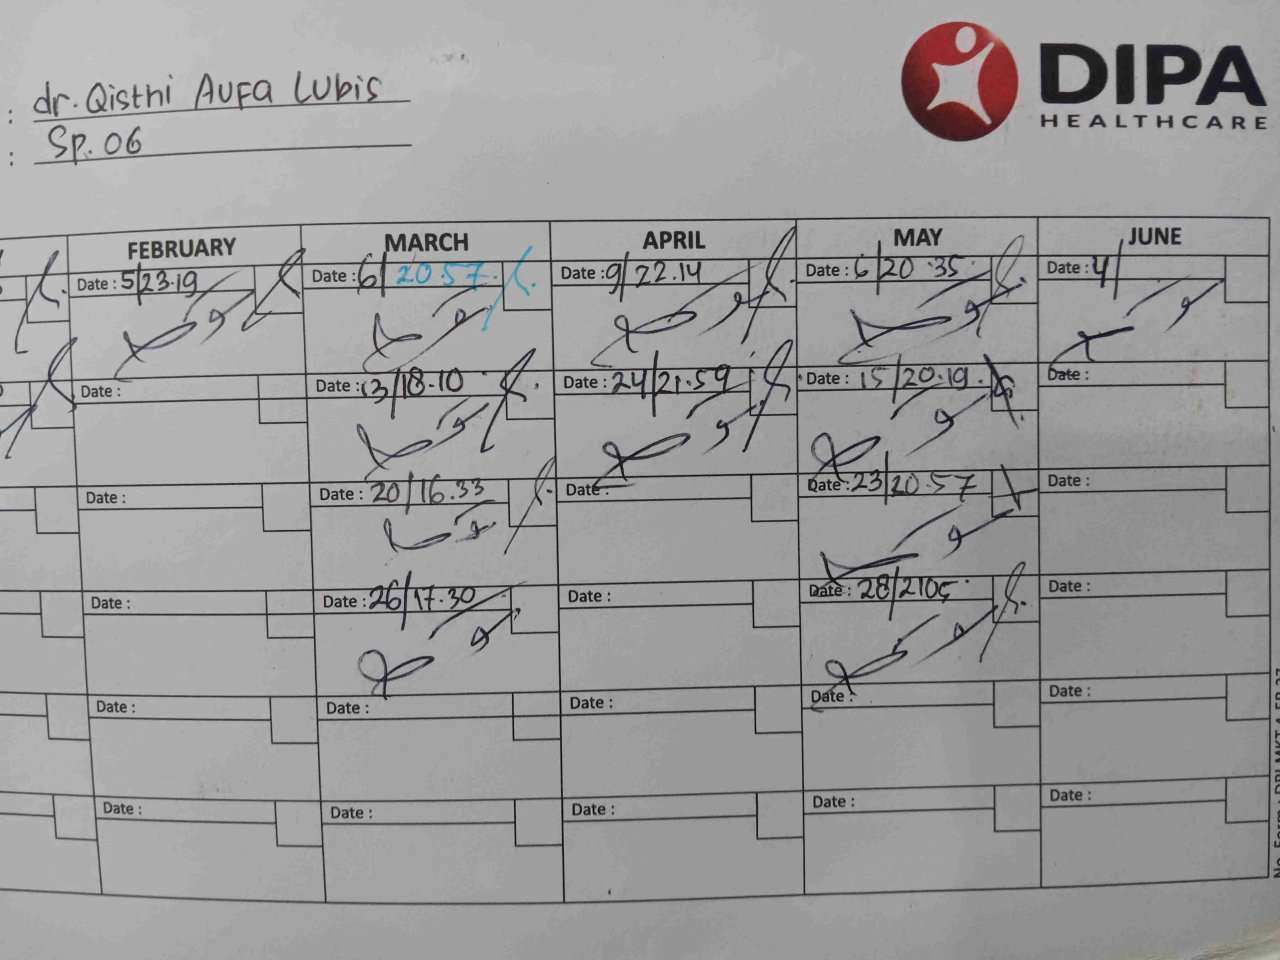 DIPA
HEALTHCARE
: dr. Qisthi Aufa Lubis
: Sp. 06
FEBRUARY MARCH APRIL MAY JUNE
Date : 5/23.19 Date : 6/20.57 Date : 9/22.14 Date : 6/20.35 Date : 4/
Date : Date : 13/18.10 Date : 24/21.59 Date : 15/20.19 Date :
Date : Date : 20/16.33 Date : Date : 23/20.57 Date :
Date : Date : 26/17.30 Date : Date : 28/2105 Date :
Date : Date : Date : Date : Date :
Date : Date : Date : Date : Date :